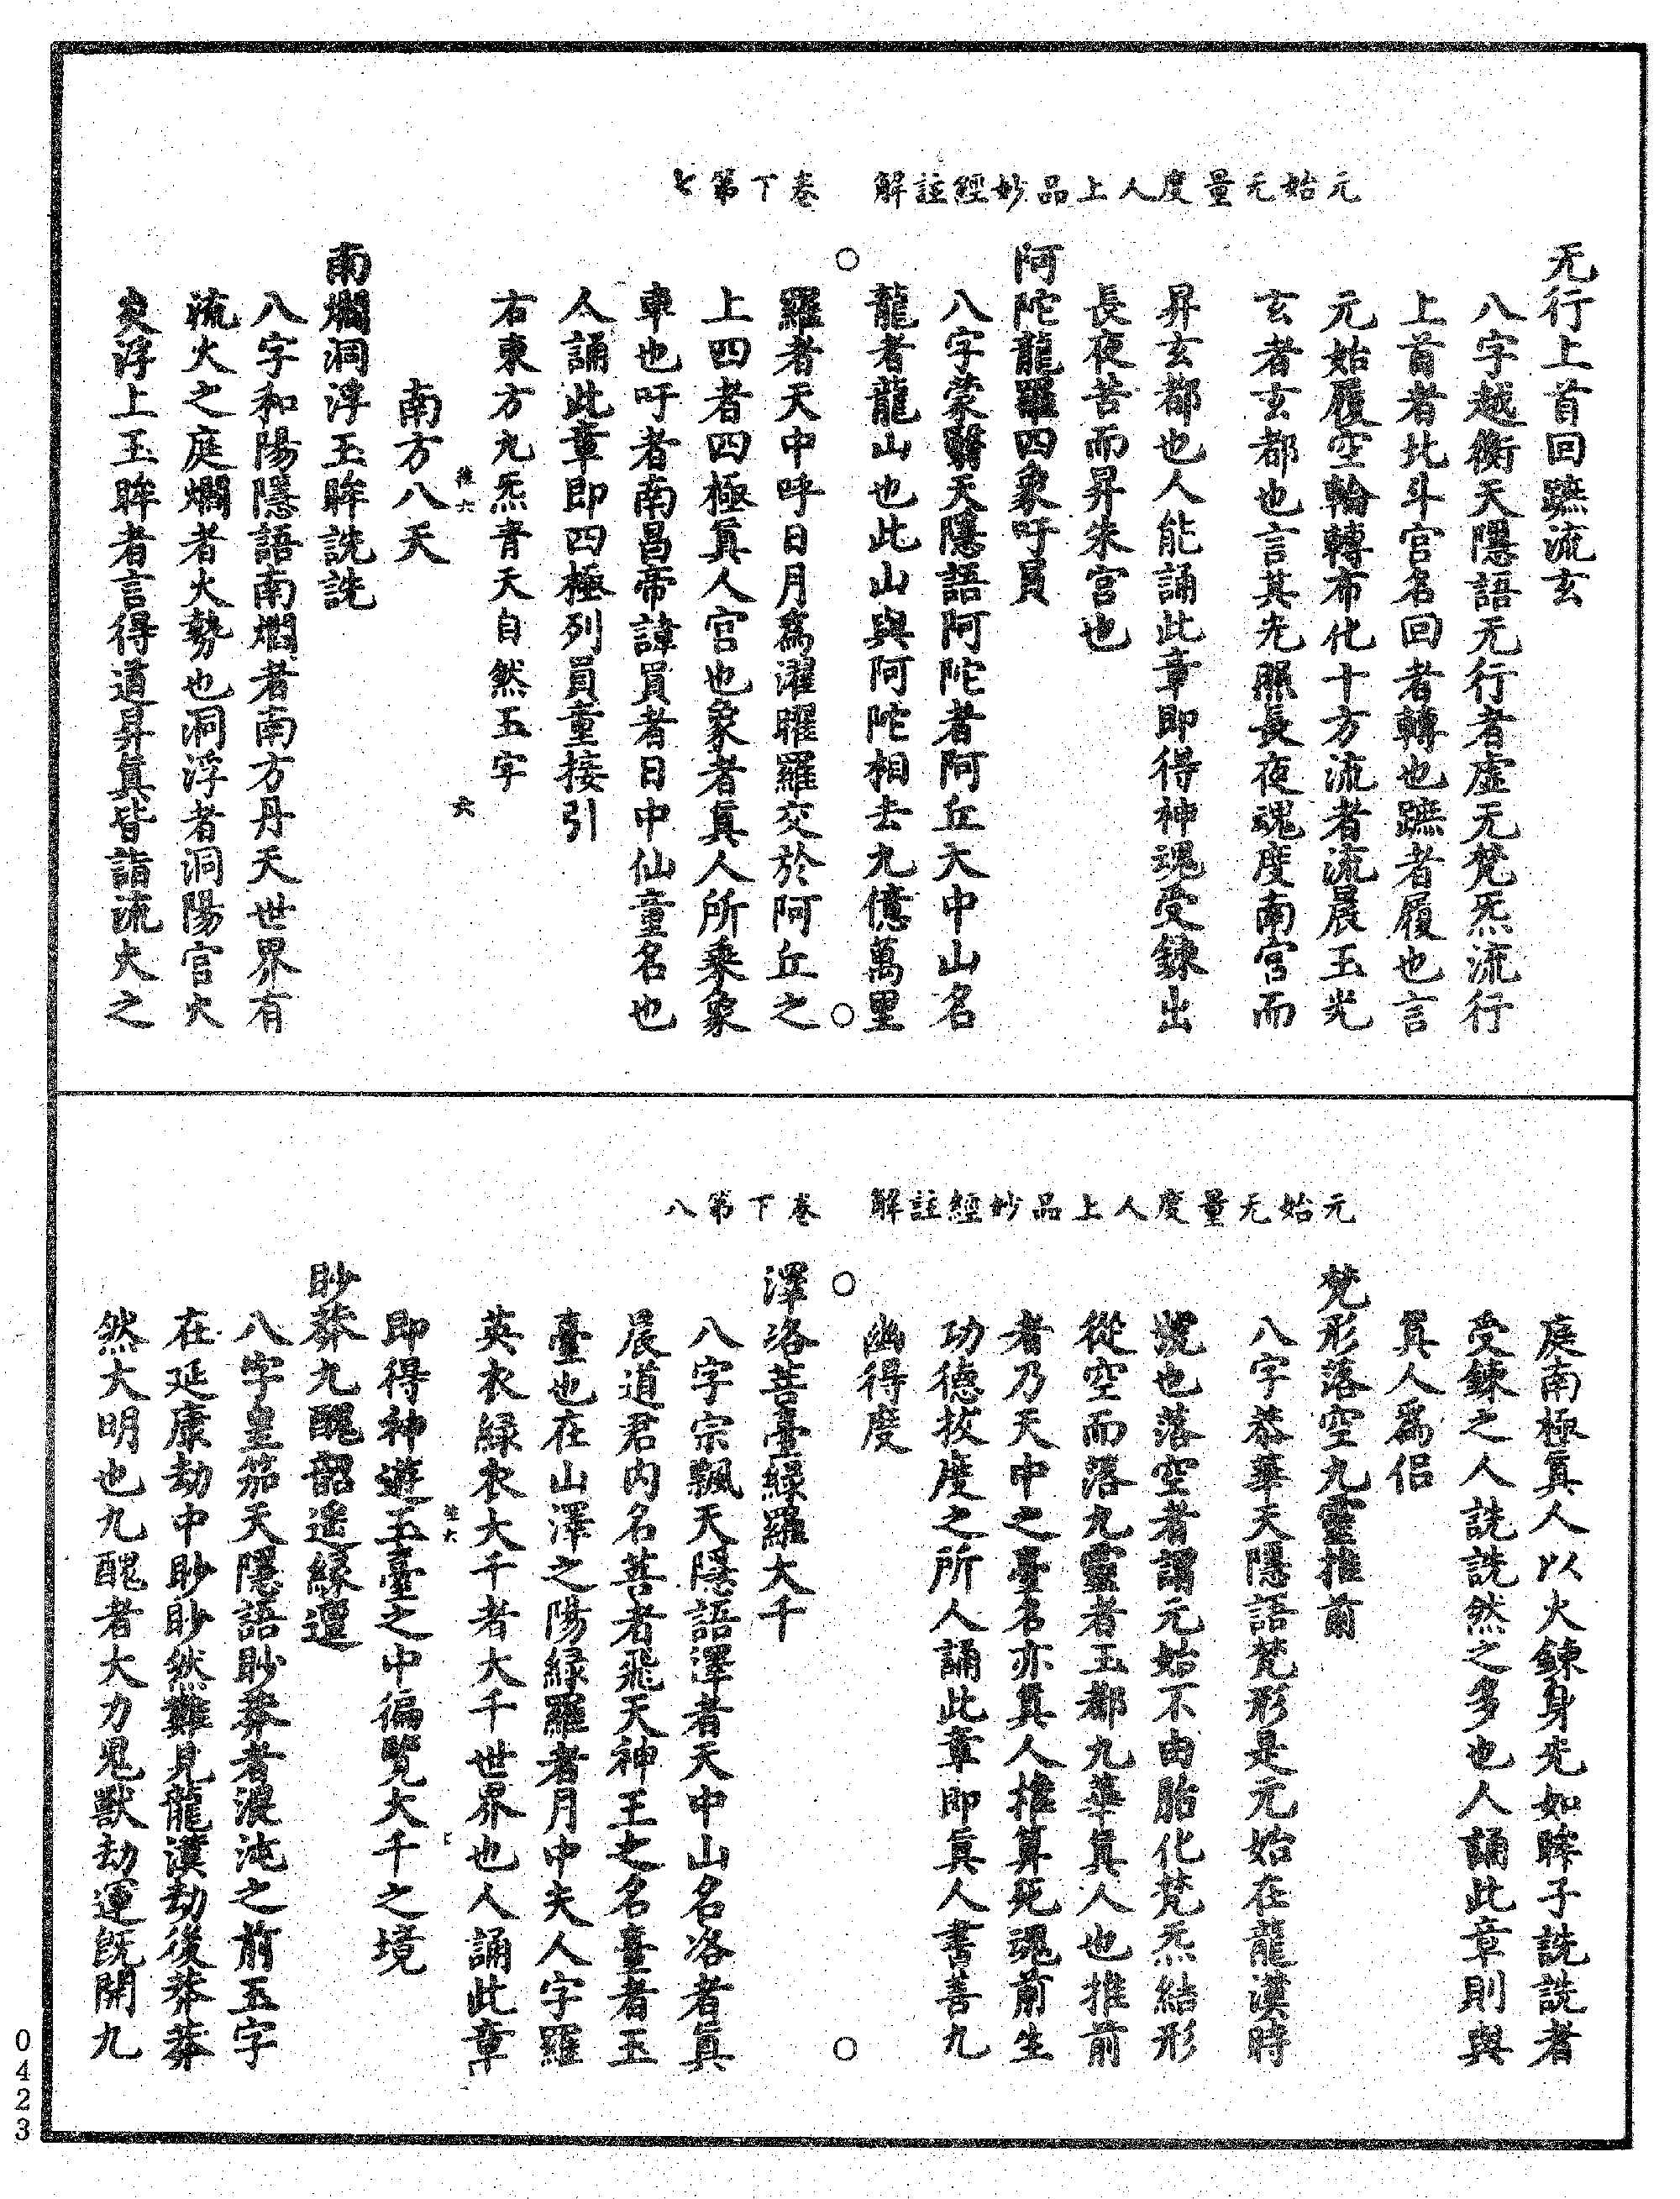 元始无量度人上品妙經註解　卷下第七
无行上首回蹠流玄
八字越衡天隱語无行者虛无梵炁流行
上首者北斗宮名回者轉也蹠者履也言
元始履空輪轉布化十方流者流晨玉光
玄者玄都也言其光照長夜魂度南宮而
昇玄都也人能誦此章即得神魂受鍊出
長夜苦而昇朱宮也
阿陀龍羅四象吁員
八字蒙翳天隱語阿陀者阿丘大中山名
龍者龍山也此山與阿陀相去九億萬里
羅者天中呼日月爲濯曜羅交於阿丘之
上四者四極眞人宮也象者眞人所乘象
車也吁者南昌帝諱員者日中仙童名也
人誦此章即四極列員童接引
右東方九炁青天自然玉字
六
南方八天
南爓洞浮玉眸詵詵
八字和陽隱語南爓者南方丹天世界有
流火之庭爓者火勢也洞浮者洞陽宮火
炎浮上玉眸者言得道昇眞皆詣流火之
元始无量度人上品妙經註解　卷下第八
庭南極眞人以火鍊身光如眸子詵詵者
受鍊之人詵詵然之多也人誦此章則與
眞人爲侶
梵形落空九靈推前
八字恭華天隱語梵形是元始在龍漢時
號也落空者謂元始不由胎化梵炁結形
從空而落九靈者玉都九華眞人也推前
者乃天中之臺名亦眞人推算死魂前生
功德拔度之所人誦此章即眞人書善九
幽得度
澤洛菩臺綠羅大千
八字宗飄天隱語澤者天中山名洛者眞
晨道君內名菩者飛天神王之名臺者玉
臺也在山澤之陽綠羅者月中夫人字羅
英衣綠衣大千者大千世界也人誦此章
即得神遊玉臺之中徧覽大千之境
眇莽九醜韶遙緣邅
八字皇笳天隱語眇莽者混沌之前五字
在延康劫中眇眇然難見龍漢劫後莽莽
然大明也九醜者大力鬼獸劫運旣開九
0423